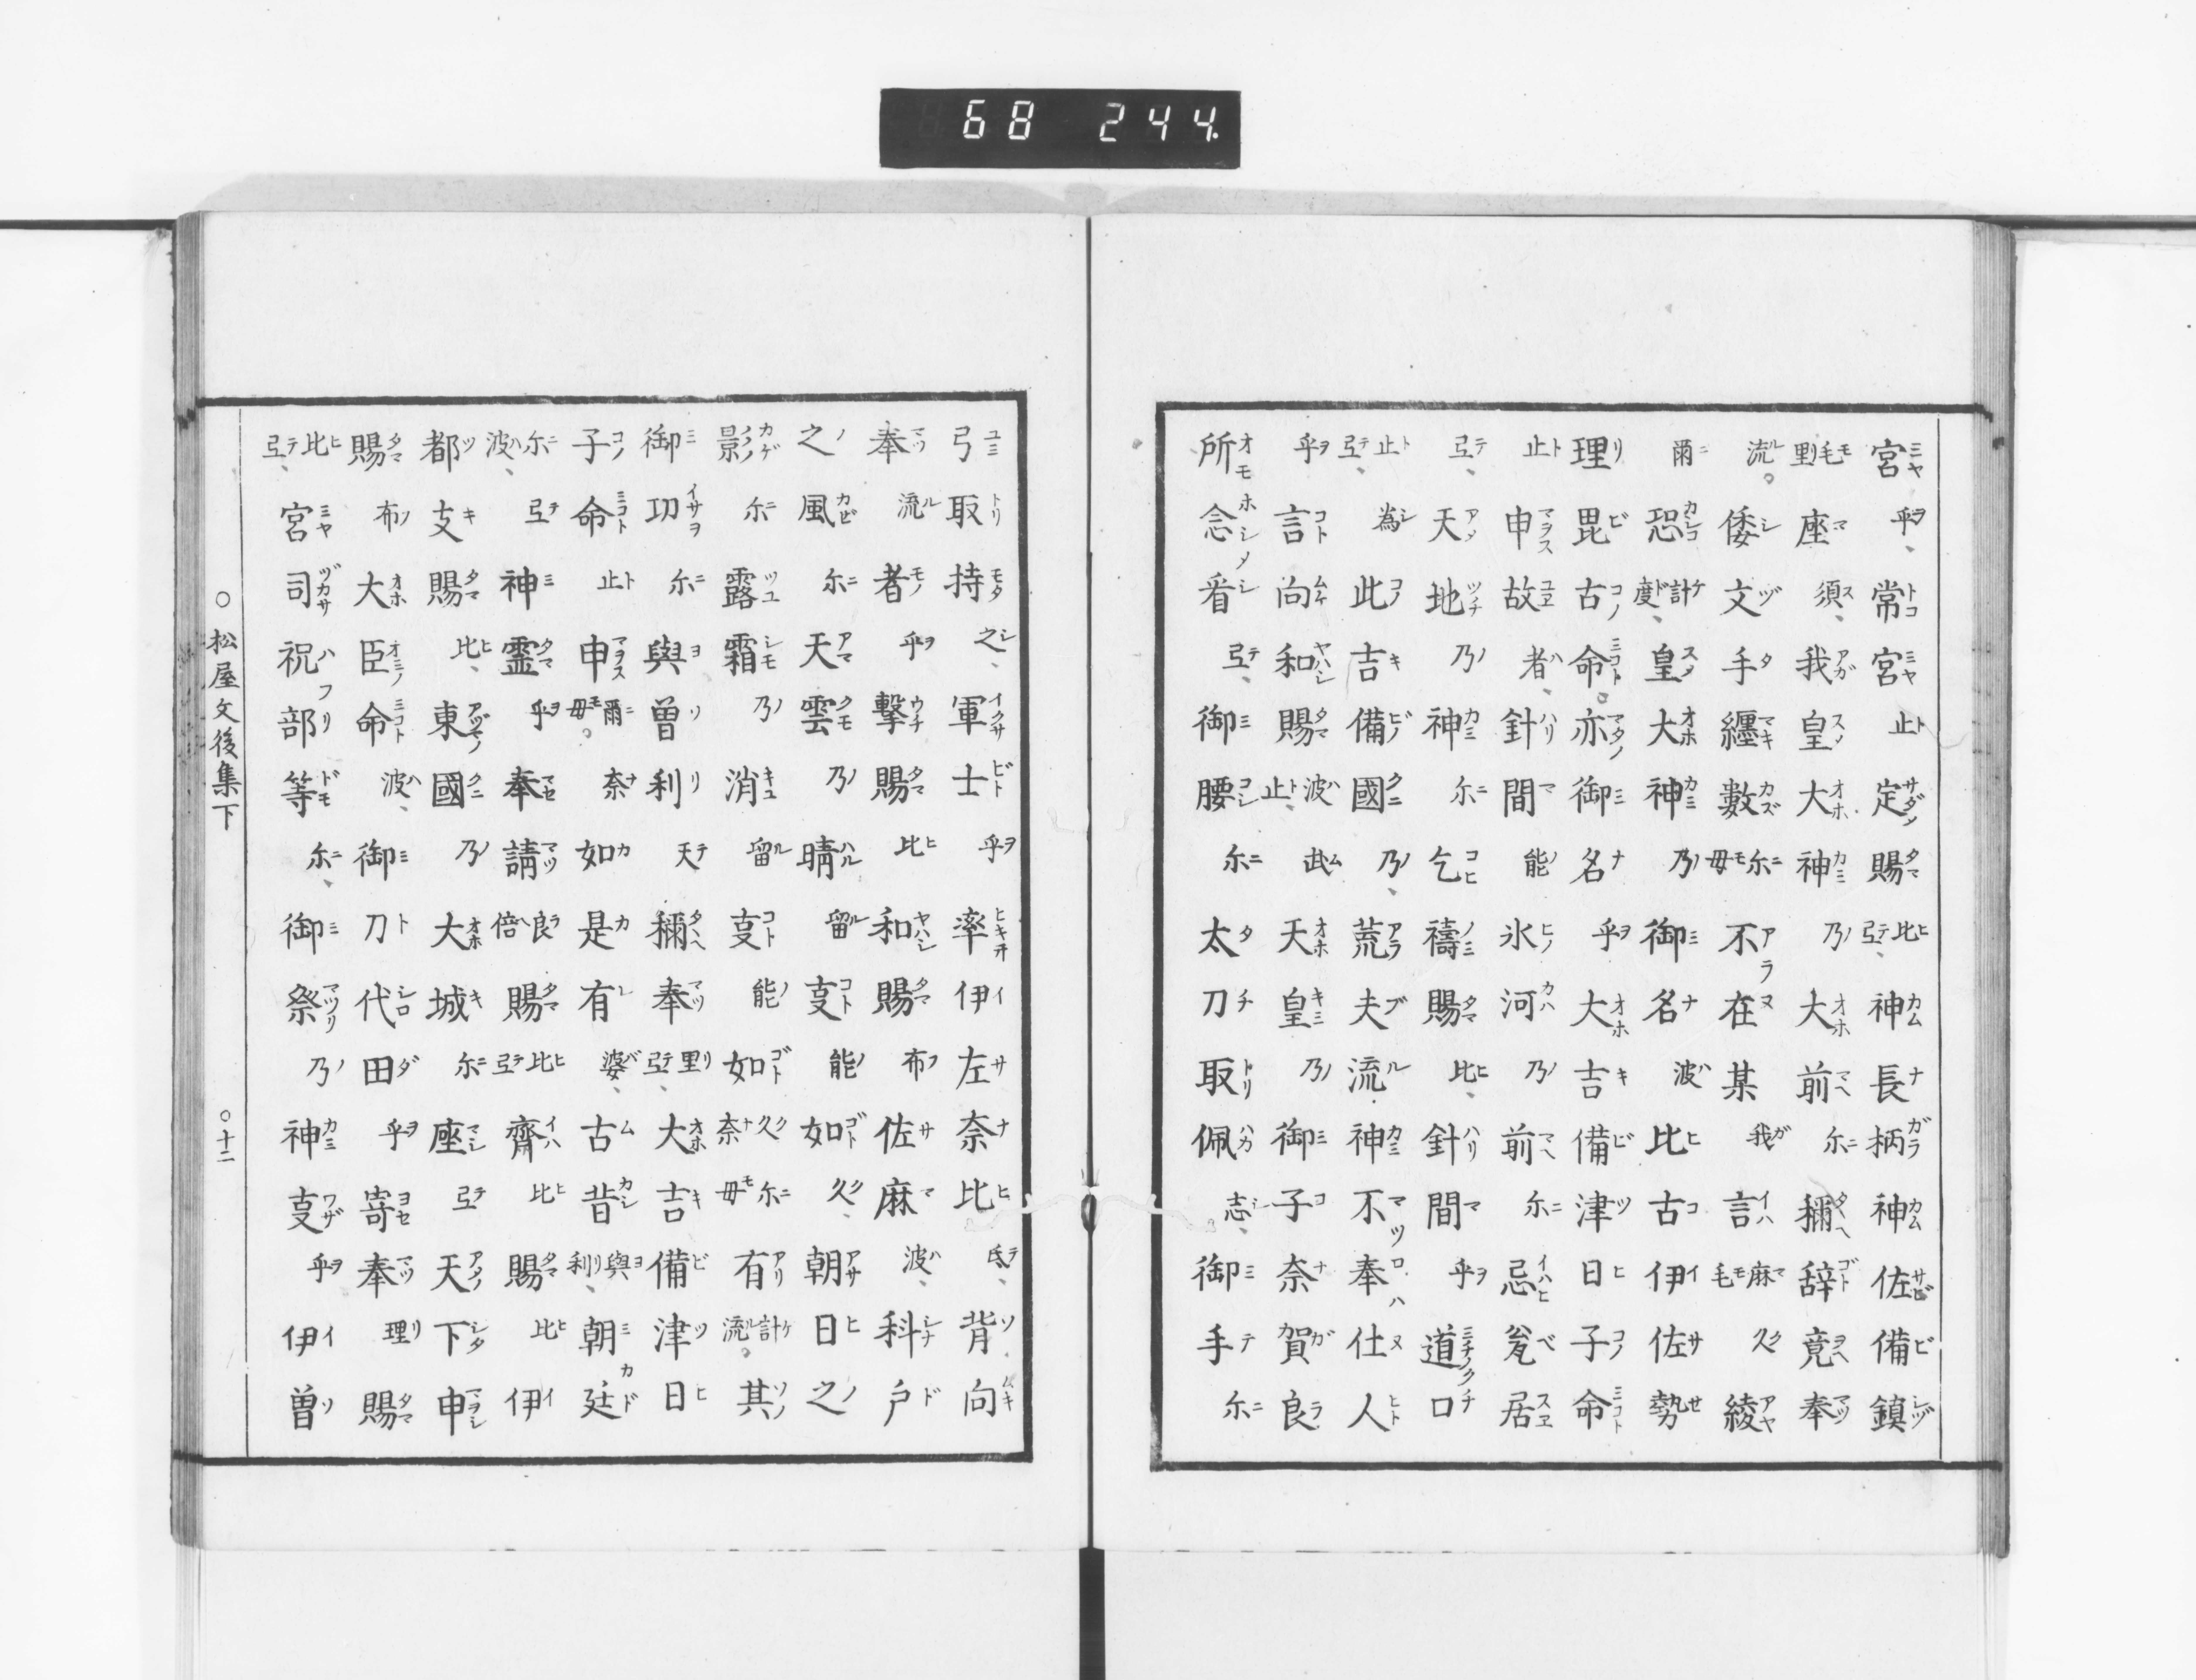 宮乎、常宮止定賜比弖、神長柄神佐備鎮
毛里座須、我皇大神乃大前尓稱辞竟奉
流。倭文手纏數尓毋不在某我言麻毛久綾
爾恐計度、皇大神乃御名波比古伊佐勢
理毘古命。亦御名乎大吉備津日子命
止申故者、針間能氷河乃前尓忌瓮居
弖、天地乃神尓乞禱賜比、針間乎道口
止弖、為此吉備國乃、荒夫流神不奉仕人
乎言向和賜波止、武天皇乃御子奈賀良
所念看弖、御腰尓太刀取佩志、御手尓
弓取持之、軍士乎率伊左奈比氐、背向
奉流者乎擊賜比和賜布佐麻波、科戶
之風尓天雲乃晴留叓能如久、朝日之
影尓露霜乃消留叓能如久奈尓毋有計流。其
御功尓與曽利天稱奉里弖、大吉備津日
子命止申爾毋。奈如是有婆、古昔與利、朝廷
尓波、弖神霊乎奉請良倍賜比弖齊比賜比伊
都支賜比、東國乃大城尓座弖天下申
賜布大臣命波、御刀代田乎寄奉理賜
比弖、宮司祝部等尓、御祭乃神叓乎伊曽
○松屋文後集下 ○十二
68 244.